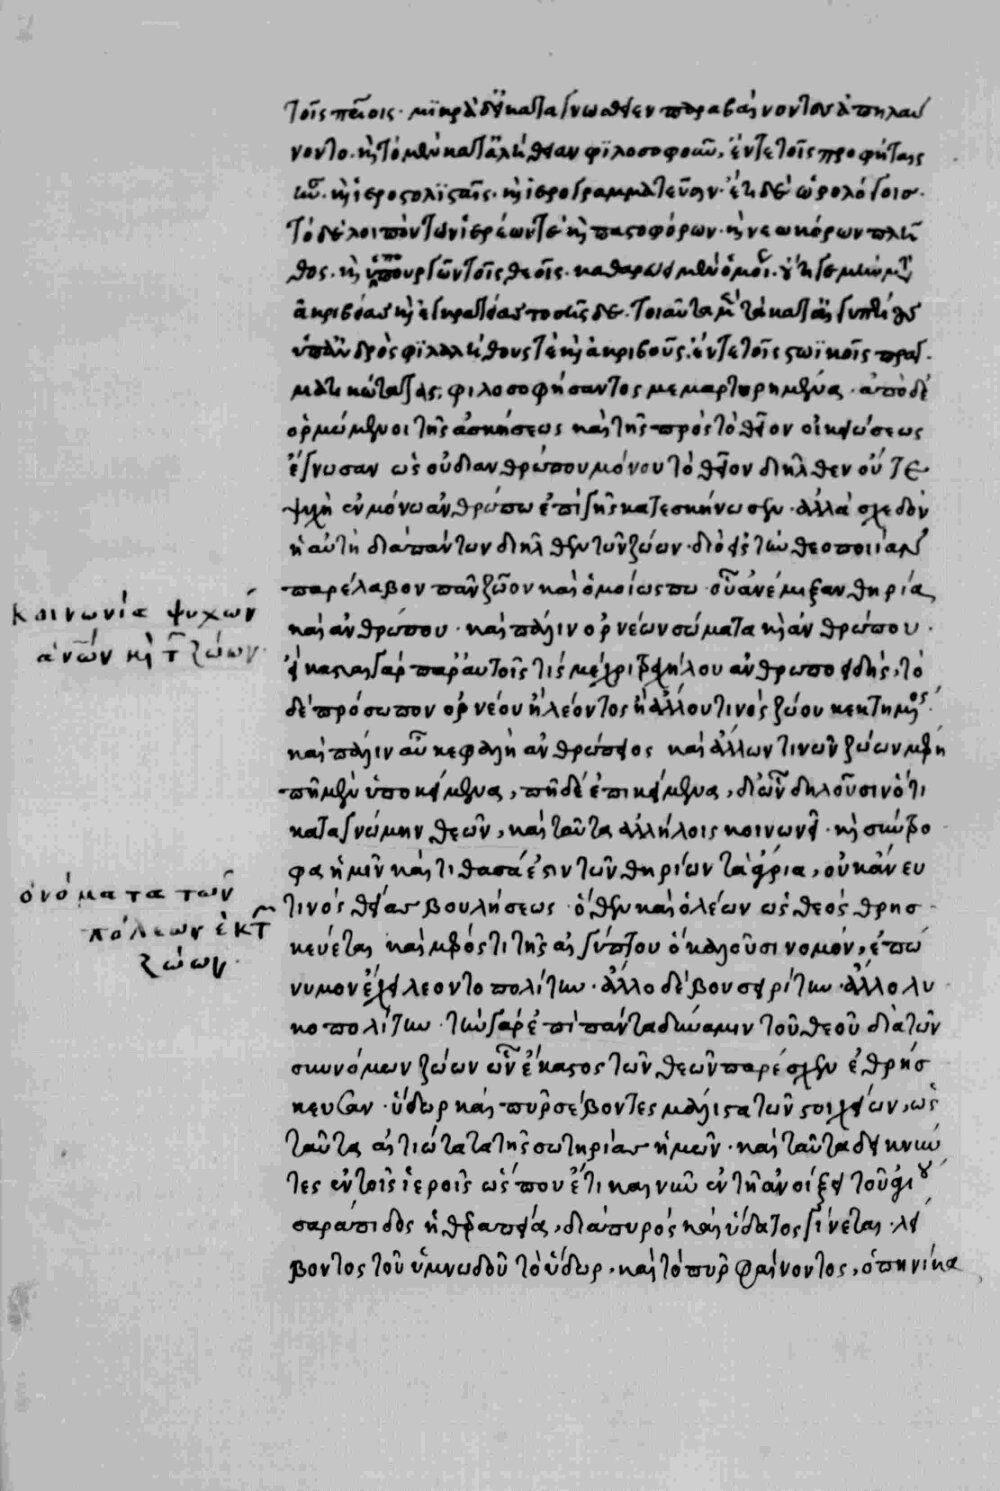 τοῖς πείοις· μικρὰ δὲ καταγνωσθὲν παραβαίνοντου ἀπηλαύ
νοντο. καὶ τὸ μὲν κατ' ἀλήθειαν φιλοσοφοῦν, ἔν τε τοῖς προφήταις
ἦν. καὶ ἱεροστολισταῖς. καὶ ἱερογραμματεῦσιν. ἔτι δὲ ὡρολόγοις.
τὸ δὲ λοιπὸν τῶν ἱερέων τε καὶ παστοφόρων. καὶ νεωκόρων πλῆ
θος. καὶ ὑπουργῶν τοῖς θεοῖς. καθαρεύει μὲν ὁμοίως. οὔτι γε μὴν μετ'
ἀκριβείας καὶ ἐγκρατείας τοσῆς δε. τοιαῦτα μὲν τὰ κατ' αἰγυπτίους
ὑπ' ἀνδρὸς φιλαλήθους τε καὶ ἀκριβοῦς. ἔν τε τοῖς στωϊκοῖς πραγ
ματικώτατα. φιλοσοφήσαντος μεμαρτυρημένα. ἀπὸ δὲ
ὁρμώμενοι τῆς ἀσκήσεως καὶ τῆς πρὸς τὸ θεῖον οἰκειώσεως
ἔγνωσαν ὡς οὐ δι' ἀνθρώπου μόνου τὸ θεῖον διῆλθεν οὔτε
ψυχὴ ἐν μόνω ἀνθρώπω ἐπὶ γῆς κατεσκήνωσεν. ἀλλὰ σχεδὸν
ἡ αὐτὴ διὰ πάντων διῆλθεν τῶν ζώων. διὸ εἰς τὴν θεοποιίαν
παρέλαβον πᾶν ζῶον καὶ ὁμοίως που οὖν ἀνέμιξαν θηρία
κοινωνία ψυχῶν
ἀνῶν καὶ τ ζώων
καὶ ἀνθρώπου. καὶ πάλιν ὀρνέων σώματα καὶ ἀνθρώπου.
εἴκασται γὰρ παρ' αὐτοῖς τὶς μέχρι τραχήλου ἀνθρωποειδής, τὸ
δὲ πρόσωπον ὀρνέου ἢ λέοντος ἢ ἄλλου τινὸς ζώου κεκτημένος.
καὶ πάλιν αὖ κεφαλὴ ἀνθρώπειος καὶ ἄλλων τινῶν ζώων μέρη
πῆ μὲν ὑποκείμενα, πῆ δὲ ἐπικείμενα, δι' ὧν δηλοῦσιν ὅτι
κατὰ γνώμην θεῶν, καὶ ταῦτα ἀλλήλοις κοινωνεῖ. καὶ σύντρο
φα ἡμῖν καὶ τιθασά ἐστιν τῶν θηρίων τὰ ἄγρια, οὐκ ἄνευ
ὀνόματα τῶν
πόλεων ἐκ τ
ζώων.
τινὸς θείας βουλήσεως. ὅθεν καὶ ὁ λέων ὡς θεὸς θρησ
κεύεται καὶ μέρος τι τῆς αἰγύπτου ὃ καλοῦσι νομὸν, ἐπώ
νυμον ἔχει λεοντοπολίτην. ἄλλο δὲ βουσιρίτην. ἄλλο λυ
κοπολίτην. τὴν γὰρ ἐπὶ πάντα δύναμιν τοῦ θεοῦ διὰ τῶν
συννόμων ζώων ὧν ἕκαστος τῶν θεῶν παρέσχεν ἐθρήσ
κευσαν. ὕδωρ καὶ πῦρ σέβοντες μάλιστα τῶν στοιχείων, ὡς
ταῦτα αἰτιώτατα τῆς σωτηρίας ἡμῶν. καὶ ταῦτα δεικνύν
τες ἐν τοῖς ἱεροῖς ὥς που ἔτι καὶ νῦν ἐν τῆ ἀνοίξει τοῦ ἁγίου
σαράπιδος ἡ θεραπεία, διὰ πυρὸς καὶ ὕδατος γίνεται. λεί
βοντος τοῦ ὑμνωδοῦ τὸ ὕδωρ. καὶ τὸ πῦρ φαίνοντος, ὁπηνίκα